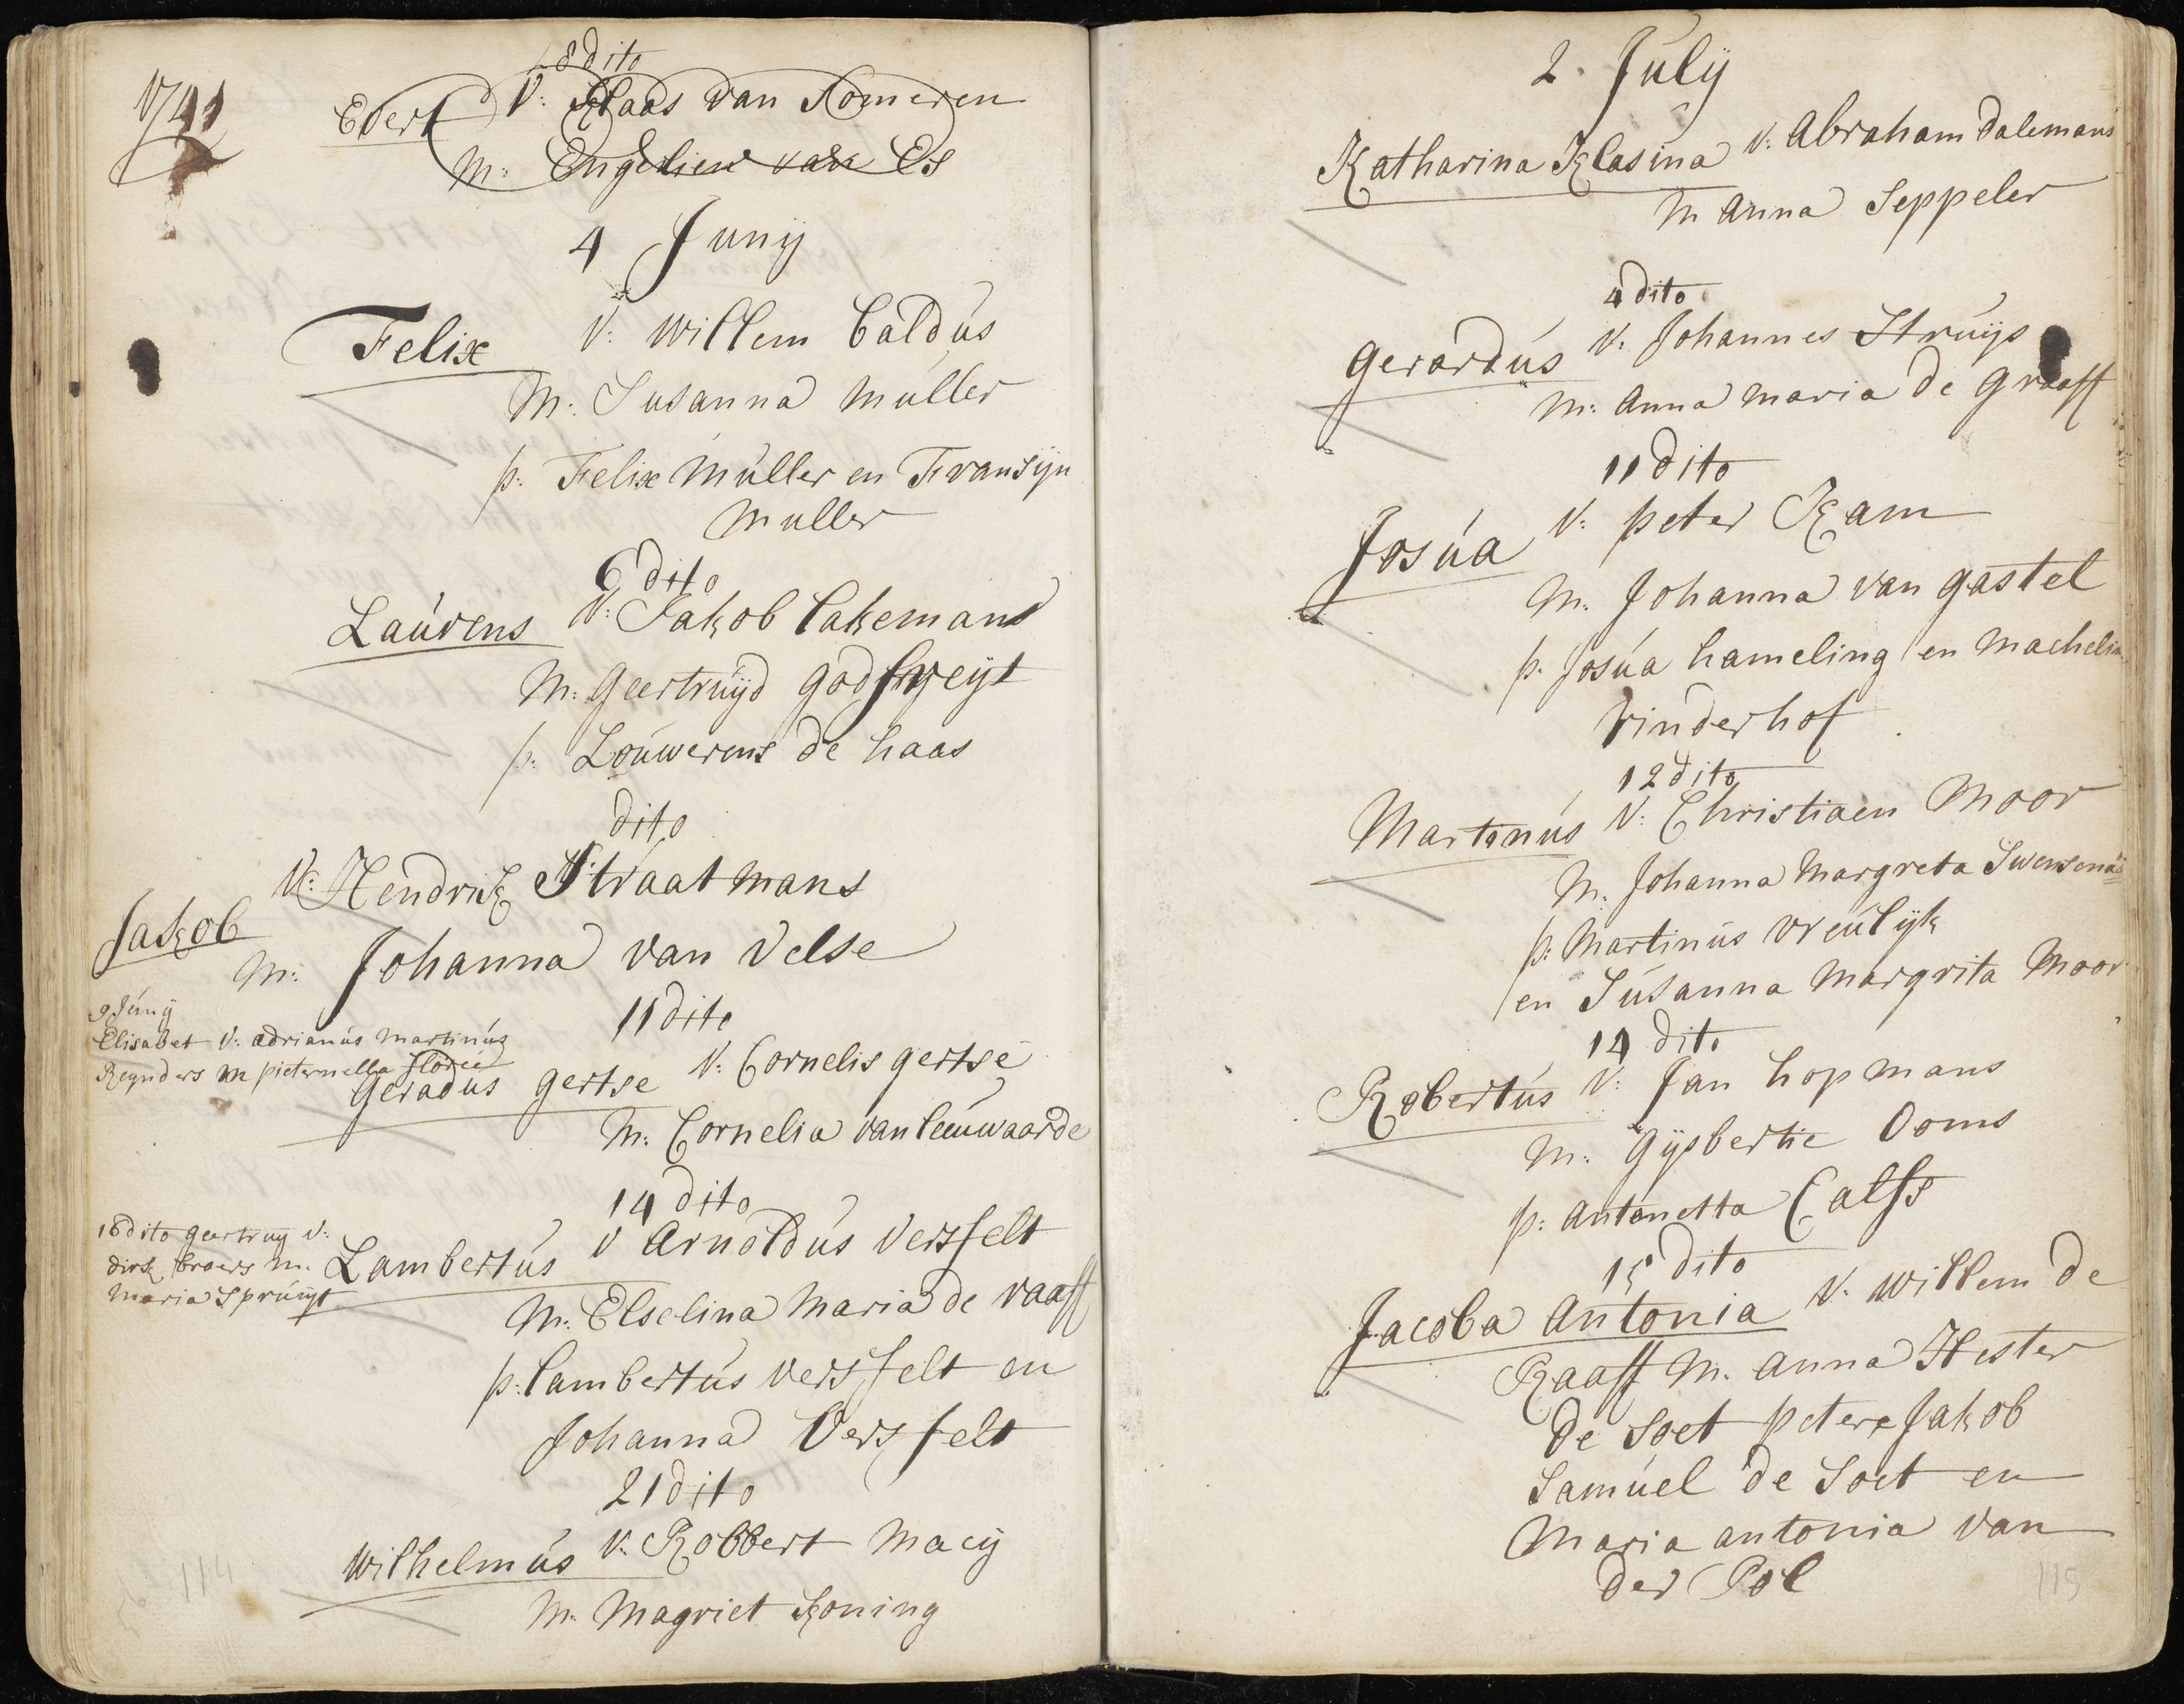 1741
18 dito
Evert V: Klaas van Someren
M: Engelien van Es
4 Junij
Felix V: Willem Caldús
M: Susanna Múller
p: Felix Múller en Fransijn
Muller
6 dito
Laúrens V: Jakob Lakemans
M: Geertrúijd
p: Loúwerens de haas
dito
V: Hendrik Straatmans
Jakob
M: Johanna van Velse
9 Júnij
Elisabet V: adrianús Martinús
Reynders M pieternella
11 dito
Geradús gertse V: Cornelis gertse
M: Cornelia van leeúwaarde
14 dito
18 dito geertruy V:
dirk broers M:
Maria Sprúijt
Lambertús V Arnoldús Versfelt
M: Elselina Maria de raaff
p: lambertús versfelt en
Johanna Versfelt
21 dito
Wilhelmús V: Robbert Macij
M: Magriet Koning
114
2 Júlij
Katharina Klasina V: Abraham dalemans
M Anna Seppeler
4 dito
Gerardús V: Johannes Strúijs
M: Anna Maria de graaff
11 dito
Josúa V: peter Kam
M: Johanna van gastel
p: Josúa hameling en Machelin
Vinderhof
12 dito
Martinús V: Christiaen Moor
M: Johanna Margreta
p: Martinús Vreúlijk
en Súsanna Margrita Moor
14 dito
Robertús V: Jan hopmans
M: Gijsbertie Ooms
p: Antonetta Calfs
15 dito
Jacoba Antonia V: Willem de
Raaff M: Anna Hester
de Soet petere Jakob
Samúel de Soet en
Maria antonia van
der Pol
115